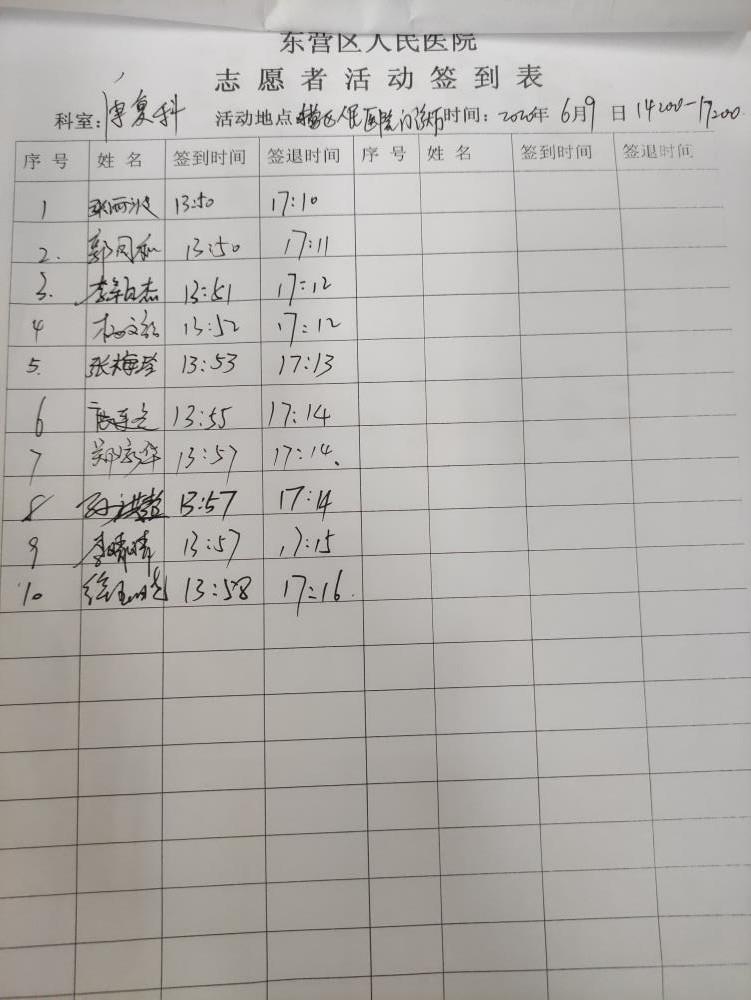 东营区人民医院
志愿者活动签到表
科室: 康复科 活动地点 东营区人民医院门诊 时间: 2020年 6月9日 14:00-17:00
序号 姓名 签到时间 签退时间 序号 姓名 签到时间 签退时间
1 13:50 17:10
2. 13:50 17:11
3. 13:51 17:12
4 13:52 17:12
5. 张梅珍 13:53 17:13
6 13:55 17:14
7 13:57 17:14.
8 13:57 17:14
9 李晴晴 13:57 17:15
10 13:58 17:16.